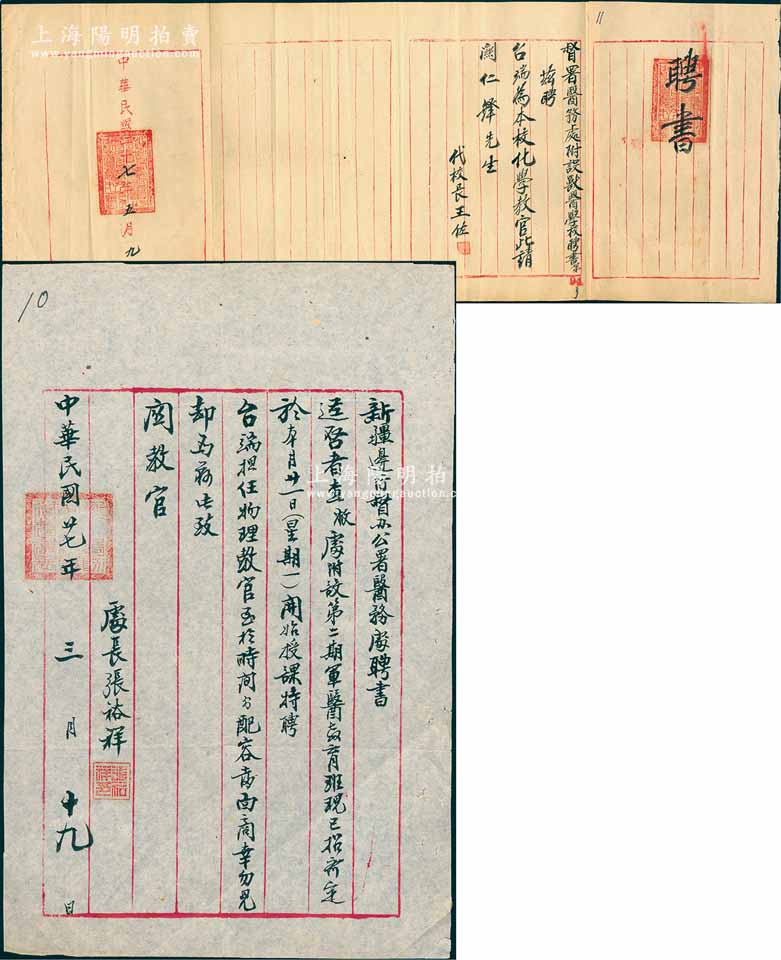 上海陽明拍賣
www.yangmingauction.com
11
聘書
督署醫務處附設獸醫學校聘書
94
茲聘
台端為本校化學教官此請
關仁鐸先生
代校長王佐
中華民國二十七年五月九
10
新疆邊防督办公署醫務處聘書
逕啓者查敝處附設第二期軍醫教育班現已招齊定
於本月廿一日(星期一)開始授課特聘
台端担任物理教官至於時间分配容當面商幸勿見
却為荷此致
関教官
處長張裕祥
中華民國廿七年三月十九日
上海陽明拍賣
www.yangmingauction.com